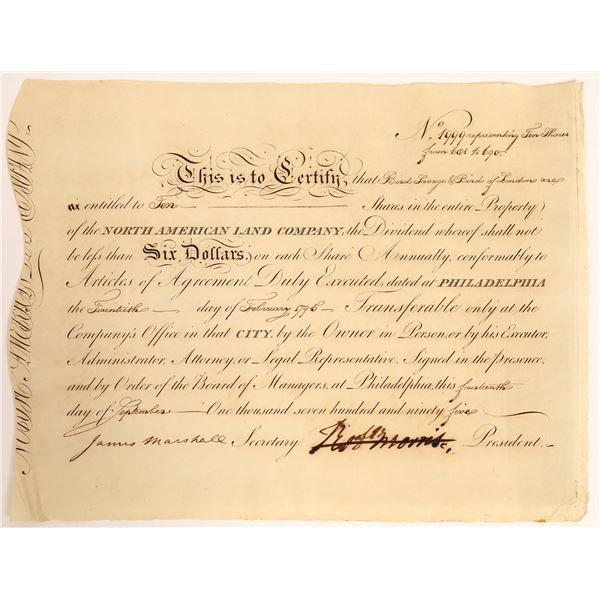 No. 1999 representing Ten Shares
from 681 to 690.
This is to Certify, that Bird Savage & Bird of London are
entitled to Ten Shares in the entire Property
of the NORTH AMERICAN LAND COMPANY, the Dividend whereof shall not
be less than Six Dollars, on each Share Annually, conformably to
Articles of Agreement Duly Executed, dated at PHILADELPHIA
the Twentieth day of February 1795 Transferable only at the
Company's Office in that CITY, by the Owner in Person, or by his Executor,
Administrator, Attorney, or Legal Representative. Signed in the presence,
and by Order of the Board of Managers, at Philadelphia, this fourteenth
day of September One thousand seven hundred and ninety five
James Marshall Secretary Robt Morris. President.
NORTH AMERICAN LAND